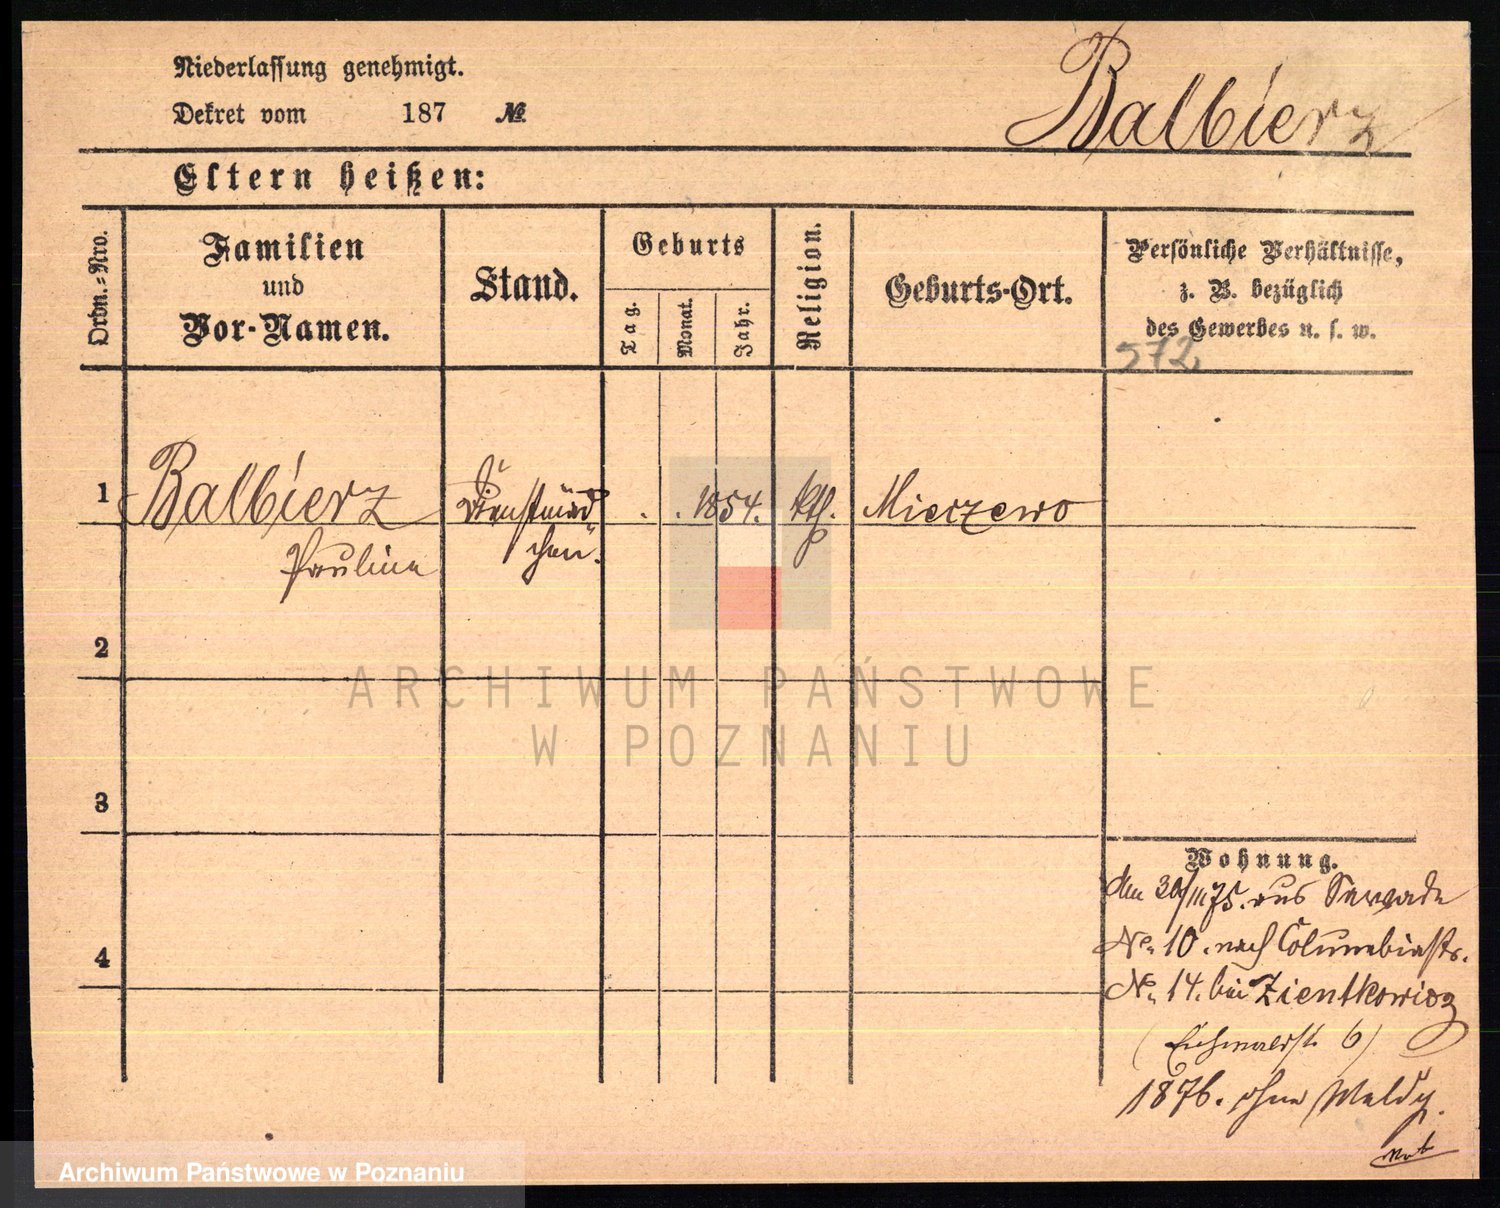 Niederlassung genehmigt.
Balbierz
Dekret vom 187 №
Eltern heißen:
Ordn.-Nro.
Familien
und
Vor-Namen.
Stand.
Geburts
Tag.
Monat.
Jahr.
Religion.
Geburts-Ort.
Persönliche Verhältnisse,
z. B. bezüglich
des Gewerbes u. s. w.
572
1 Balbierz Dienstmäd 1854. kth. Mieczewo
Pauline chen.
2
3
Wohnung.
den 30/III 75. aus
No. 10. nach Columbiastr.
4
No. 14. bei Zientkowicz
(Eichwaldstr. 6)
1876. ohne Meldg.
ARCHIWUM PAŃSTWOWE
W POZNANIU
Archiwum Państwowe w Poznaniu